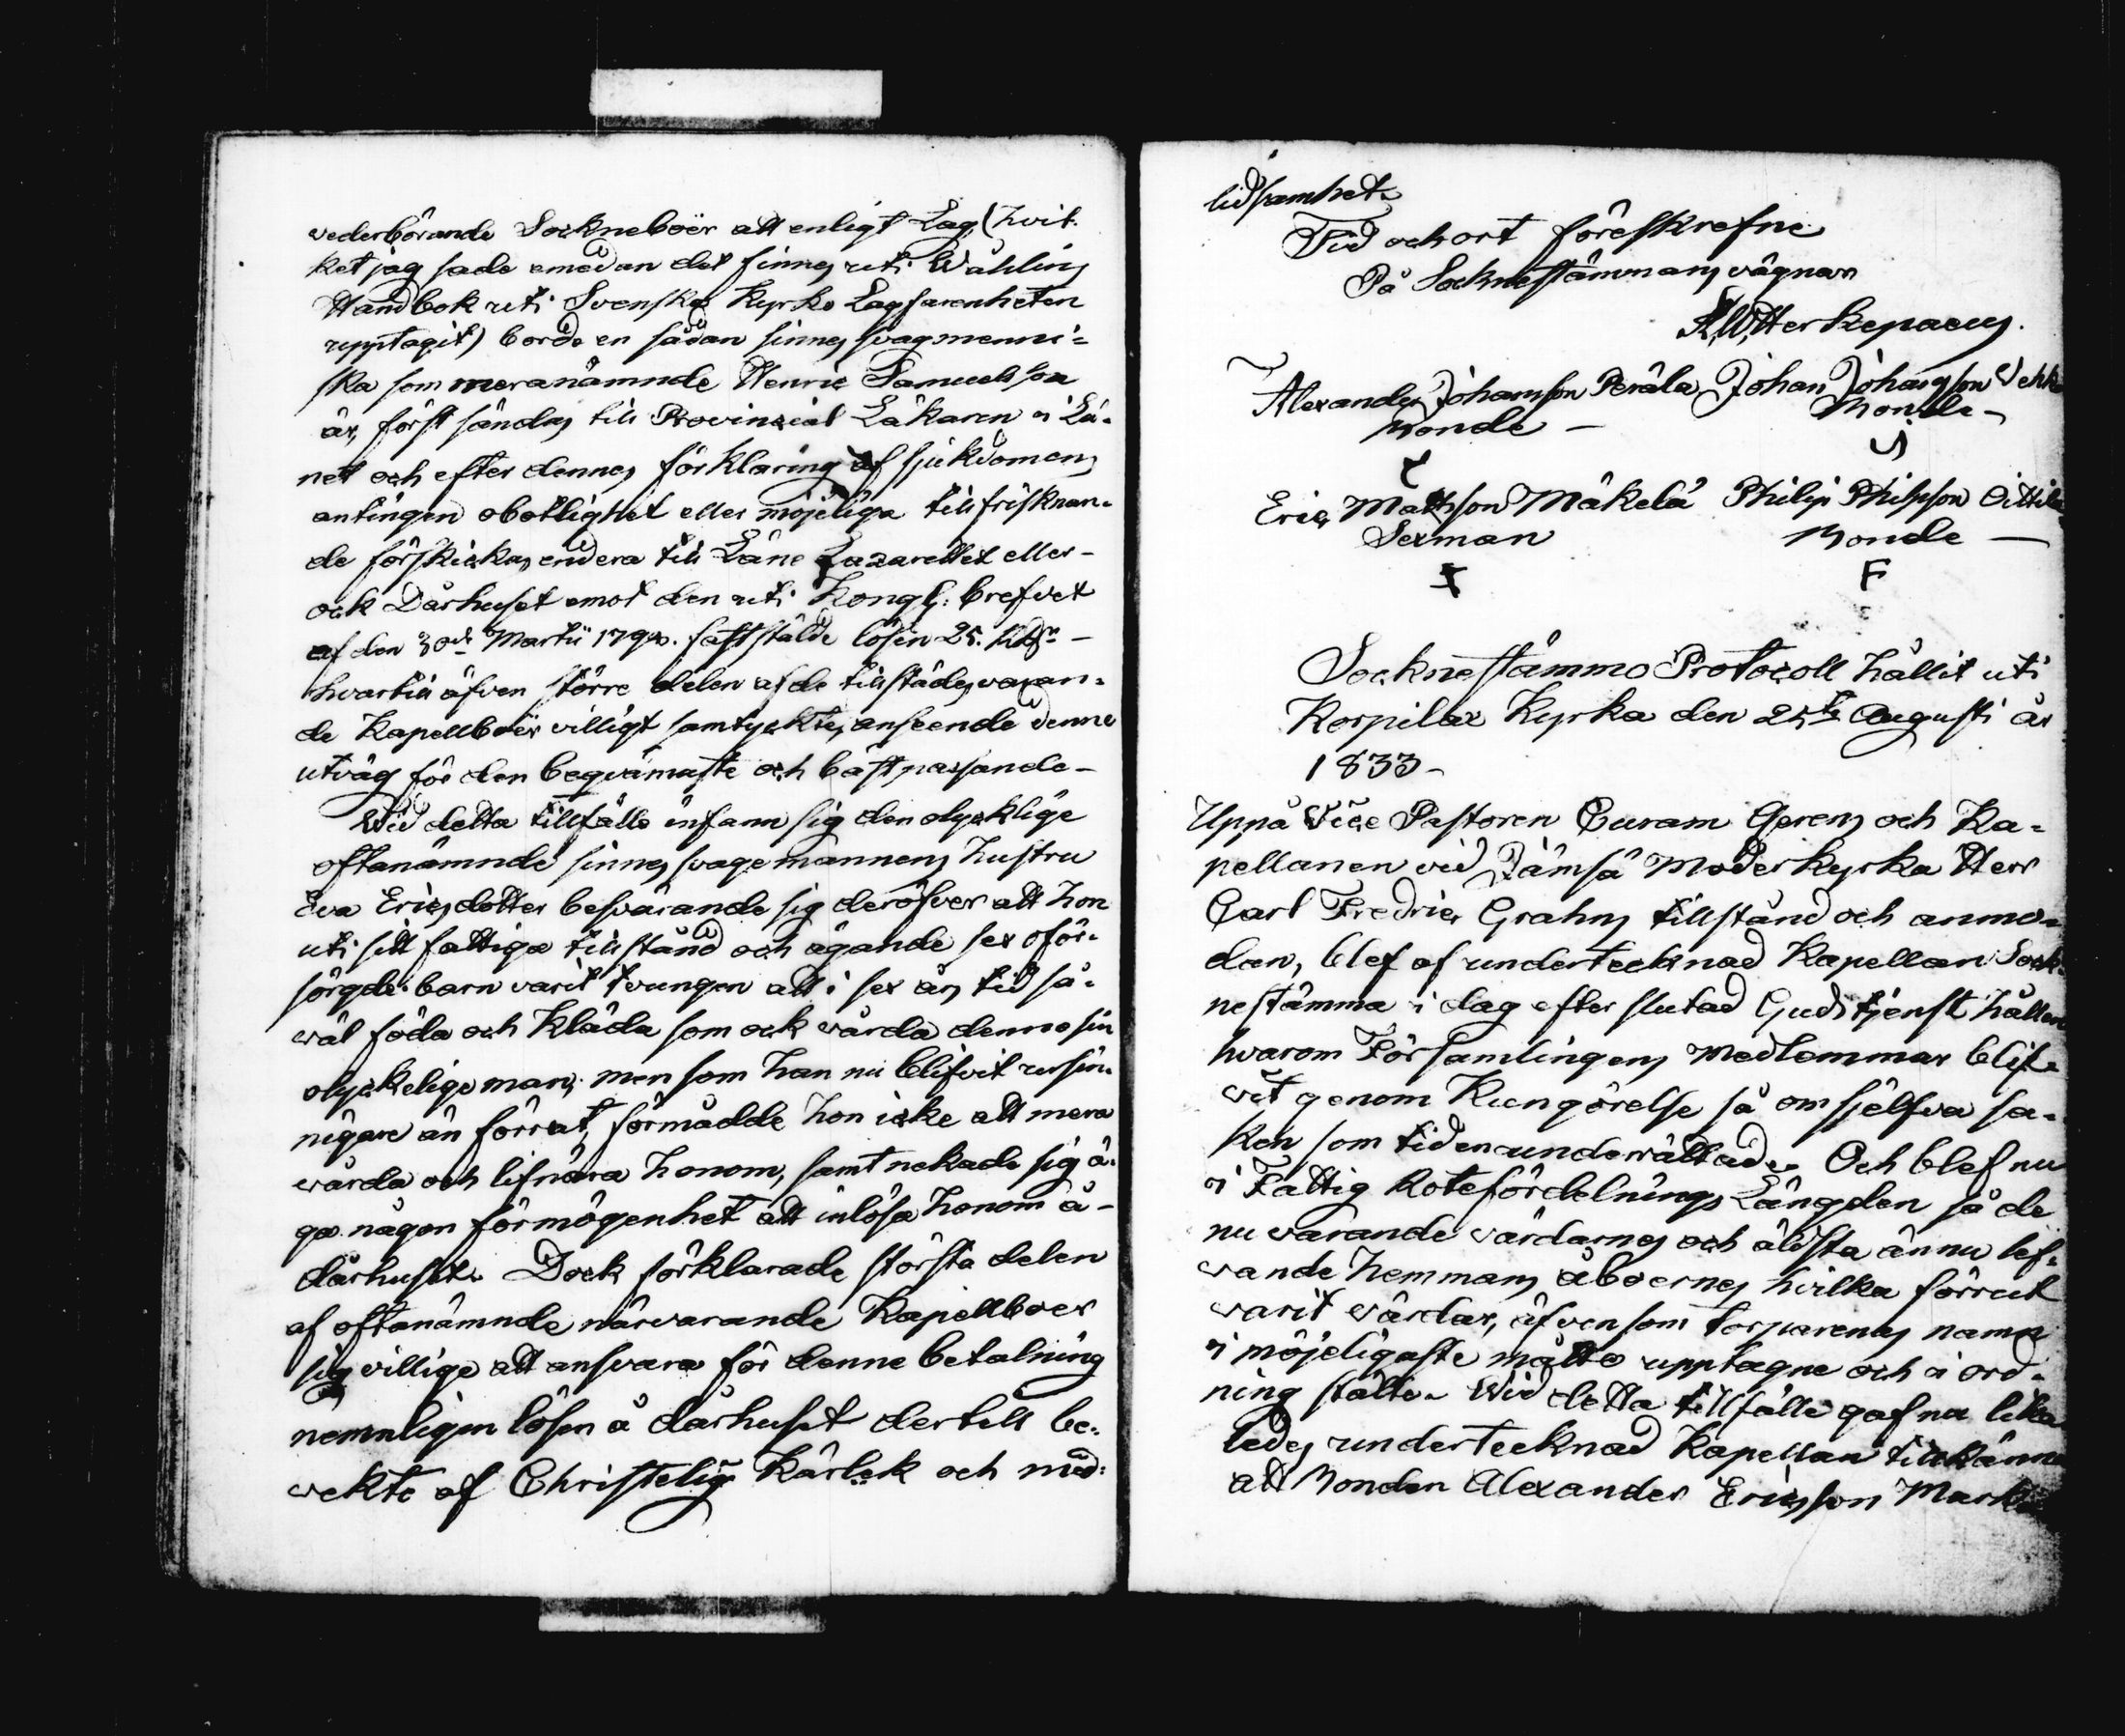 vederbörande Sockneboër att enligt Lag, (hvil-
ket jag sade emedan det finnes uti Wåhlins
Handbok uti Svenska Kyrko Lagfarenheten
upptagit) borde en sådan sinnes svag menni-
ska som meranämnde Henric Samuelsson
är, först sändas till Provinzial Läkaren i Lä-
net och efter dennes förklaring af sjukdomens
antingen obotlighet eller möjeliga tillfrisknan-
de förskickas endera till Läne Lazarettet eller
ock Dårhuset emot den uti Kongl: brefvet
af den 30de Martii 179. faststälde lösen 25. Rdr
hvartill äfven större delen af de tillstädesvaran-
de Kapellboër villigt samtyckte, anseende denne
utväg för den beqvämaste och bäst passande
Wid detta tillfälle infann sig den olycklige
oftanämnde sinnes svage mannens hustru
Eva Ericsdotter besvärande sig deröfver att hon
uti sitt fattiga tillstånd och ägande sex oför-
sörgde barn varit tvungen att i sex års tid så-
väl föda och kläda som ock vårda denne sin
olyckelige man; men som han nu blifvit ursin-
nigare än förrut, förmådde hon icke att mera
vårda och lifnära honom, samt nekade sig ä-
ga någon förmögenhet att inlösa honom å
dårhuset. Dock förklarade största delen
af oftanämnde närvarande Kapellboer
sig villige att ansvara för denne betalning
nemnligen lösen å dårhuset dertill be-
vekte af Christelig Kärlek och med-
lidsamhet.
Tid och ort föreskrefne
På Socknestämmans vägnar
Alexander Johansson Perälä Johan Johansson
Bonde Bonde
Eric Mathsson Mäkelä Philip Philpson
Sexman Bonde
F
Socknestämmo Protocoll hållit uti
Korpilax Kyrka den 25te Augusti år
1833
Uppå Vice Pastoren Curam Gerens och Ka-
pellanen vid Jämsä Moderkyrka Herr
Carl Fredric Grahns tillstånd och anmo-
dan, blef af undertecknad Kapellan Sock-
nestämma i dag efter slutad Gudstjenst hållen
hvarom Församlingens medlemmar blif-
vit genom Kungörelse så om sjelfva sa-
ken som tiden underrättade. Och blef nu
i Fattig Rotefördelnings Längden så de
nu varande värdarnes och äldsta ännu lef-
vande hemmans åboernes hvilka förrut
varit värdar, äfvensom torparenes namn
i möjeligaste måtto upptagne och i ord-
ning stälte. Wid detta tillfälle gaf nu lika
ledes undertecknad Kapellan tillkänna
att Bonden Alexander Ericsson